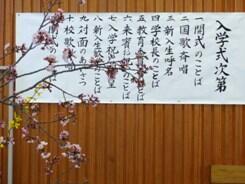 入学式次第
一開式のことば
二国歌斉唱
三新入生呼名
四学校長のことば
五教育
六来賓
七入学祝
八新入生歓
九対面のあいさつ
十校歌